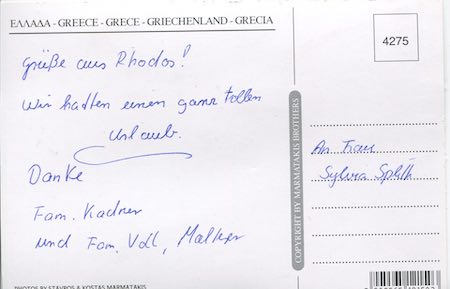 ΕΛΛΑΔΑ - GREECE - GRECE - GRIECHENLAND - GRECIA
4275
Grüße aus Rhodos!
Wir hatten einen ganz tollen
Urlaub.
Danke
Fam. Kadner
und Fam. Voll,
An Frau
Sylvia
COPYRIGHT BY MARMATAKIS BROTHERS
PHOTOS BY STAVROS & KOSTAS MARMATAKIS